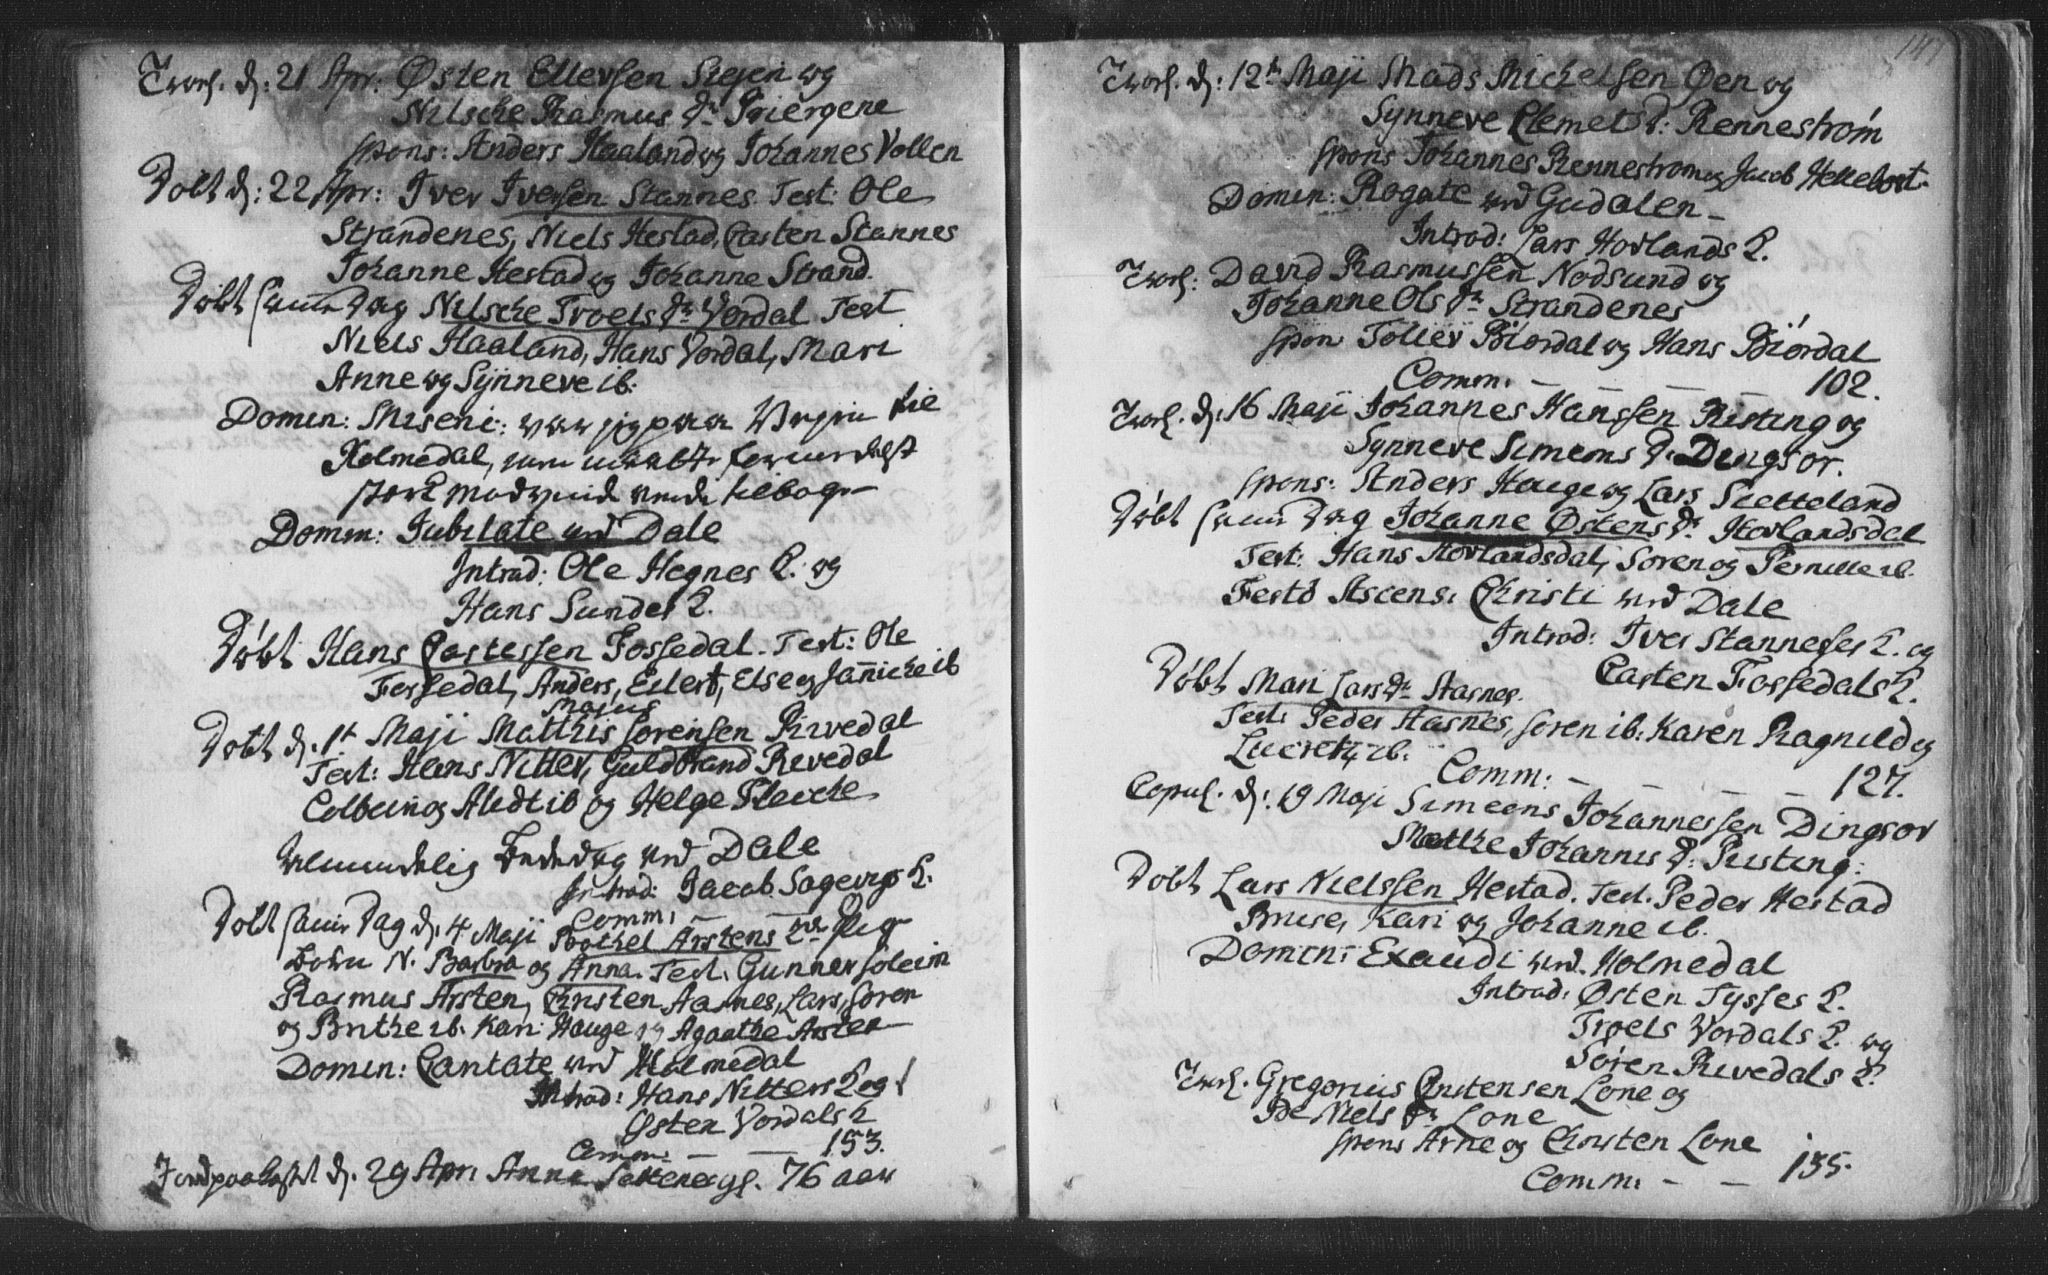 Trol. d: 21 Apr: Østen Ellevsen Siejen og
Nilsche Rasmus Dr.
spons: Anders Haaland og Johannes Vollen
Døbt d: 22 Apr: Iver Iversen Stannes. Test: Ole
Strandenes, Niels Hestad, Carsten Stannes
Johanne Hestad og Johanne Strand.
Døbt samme Dag Nilsche Troels Dr. Vordal Test
Niels Haaland, Hans Vordal, Mari
Anne og Synneve ib.
Domin: Miseric: var jeg paa Vejen til
Holmedal, men
stærk Modvind vende tilbage
Domin: Jubilate ved Dale
Introd: Ole Hegnes K. og
Hans Sundes K.
Døbt Hans Carstessen Fossedal. Test: Ole
Fossedal, Anders, Eilert, Else og Jannicke ib
Majus
Døbt d. 1t Maji Matthis Sørensen Rivedal
Test: Hans Nitter, Guldbrand Rivedal
Colbein og Aledt ib og Helge Fleicke
Almindelig Bededag ved Dale
Introd: Jacob K.
Comm:
Døbt samme Dag d. 4 Maji Bothel Arstens
N. Barbra og Anna. Test. Gunner Soleim
Rasmus Arsten, Christen Aasnes, Lars, Søren
og Brithe ib. Kari Hauge og Agaathe Arsten
Domin: Cantate ved Holmedal
Introd: Hans Nitters K og
Østen Vordals K
Comm: — — 153.
Jordpaakastet d. 29 Apr. Anna 76 aar
147
Trol. d: 12te Maji Mads Michelsen Øen og
Synneve Clemets D: Rennestrøm
spons Johannes Rennestrøm og Jacob Hellebost
Domin: Rogate ved Gudalen —
Introd: Lars Hovlands K.
Trol: David Rasmussen Nodsund og
Johanne Ols Dr. Strandenes
spon: Tollev Biordal og Hans Biordal
Comm. — — — — 102.
Trol. d: 16 Maji Johannes Hanssen Risting og
Synneve Simens D. Dingsør.
spons: Anders Hauge og Lars Sletteland
Døbt samme Dag Johanne Østens Dr. Hovlandsdal
Test: Hans Hovlandsdal, Søren og Pernille ib.
Festo Ascens: Christi ved Dale
Introd: Iver Stannesses K. og
Carsten Fossedals K.
Døbt Mari Lars Dr. Aasnes.
Test: Peder Aasnes, Søren ib. Karen Ragnild og
Lucretz ib.
Comm: — — — — 127.
Copul. d: 19 Maji Simeens Johannessen Dingsør
Matthe Johannis D: Risting.
Døbt Lars Nielssen Hestad. Test. Peder Hestad
Bruse, Kari og Johanne ib.
Domin: Exaudi ved Holmedal
Introd: Østen Tysses K.
Troels Vordals K. og
Søren Rivedals K.
Trol. Gregorius Christensen Lone og
Niels Dr. Lone
spons Arne og Christen Lone
Comm: — — 135.